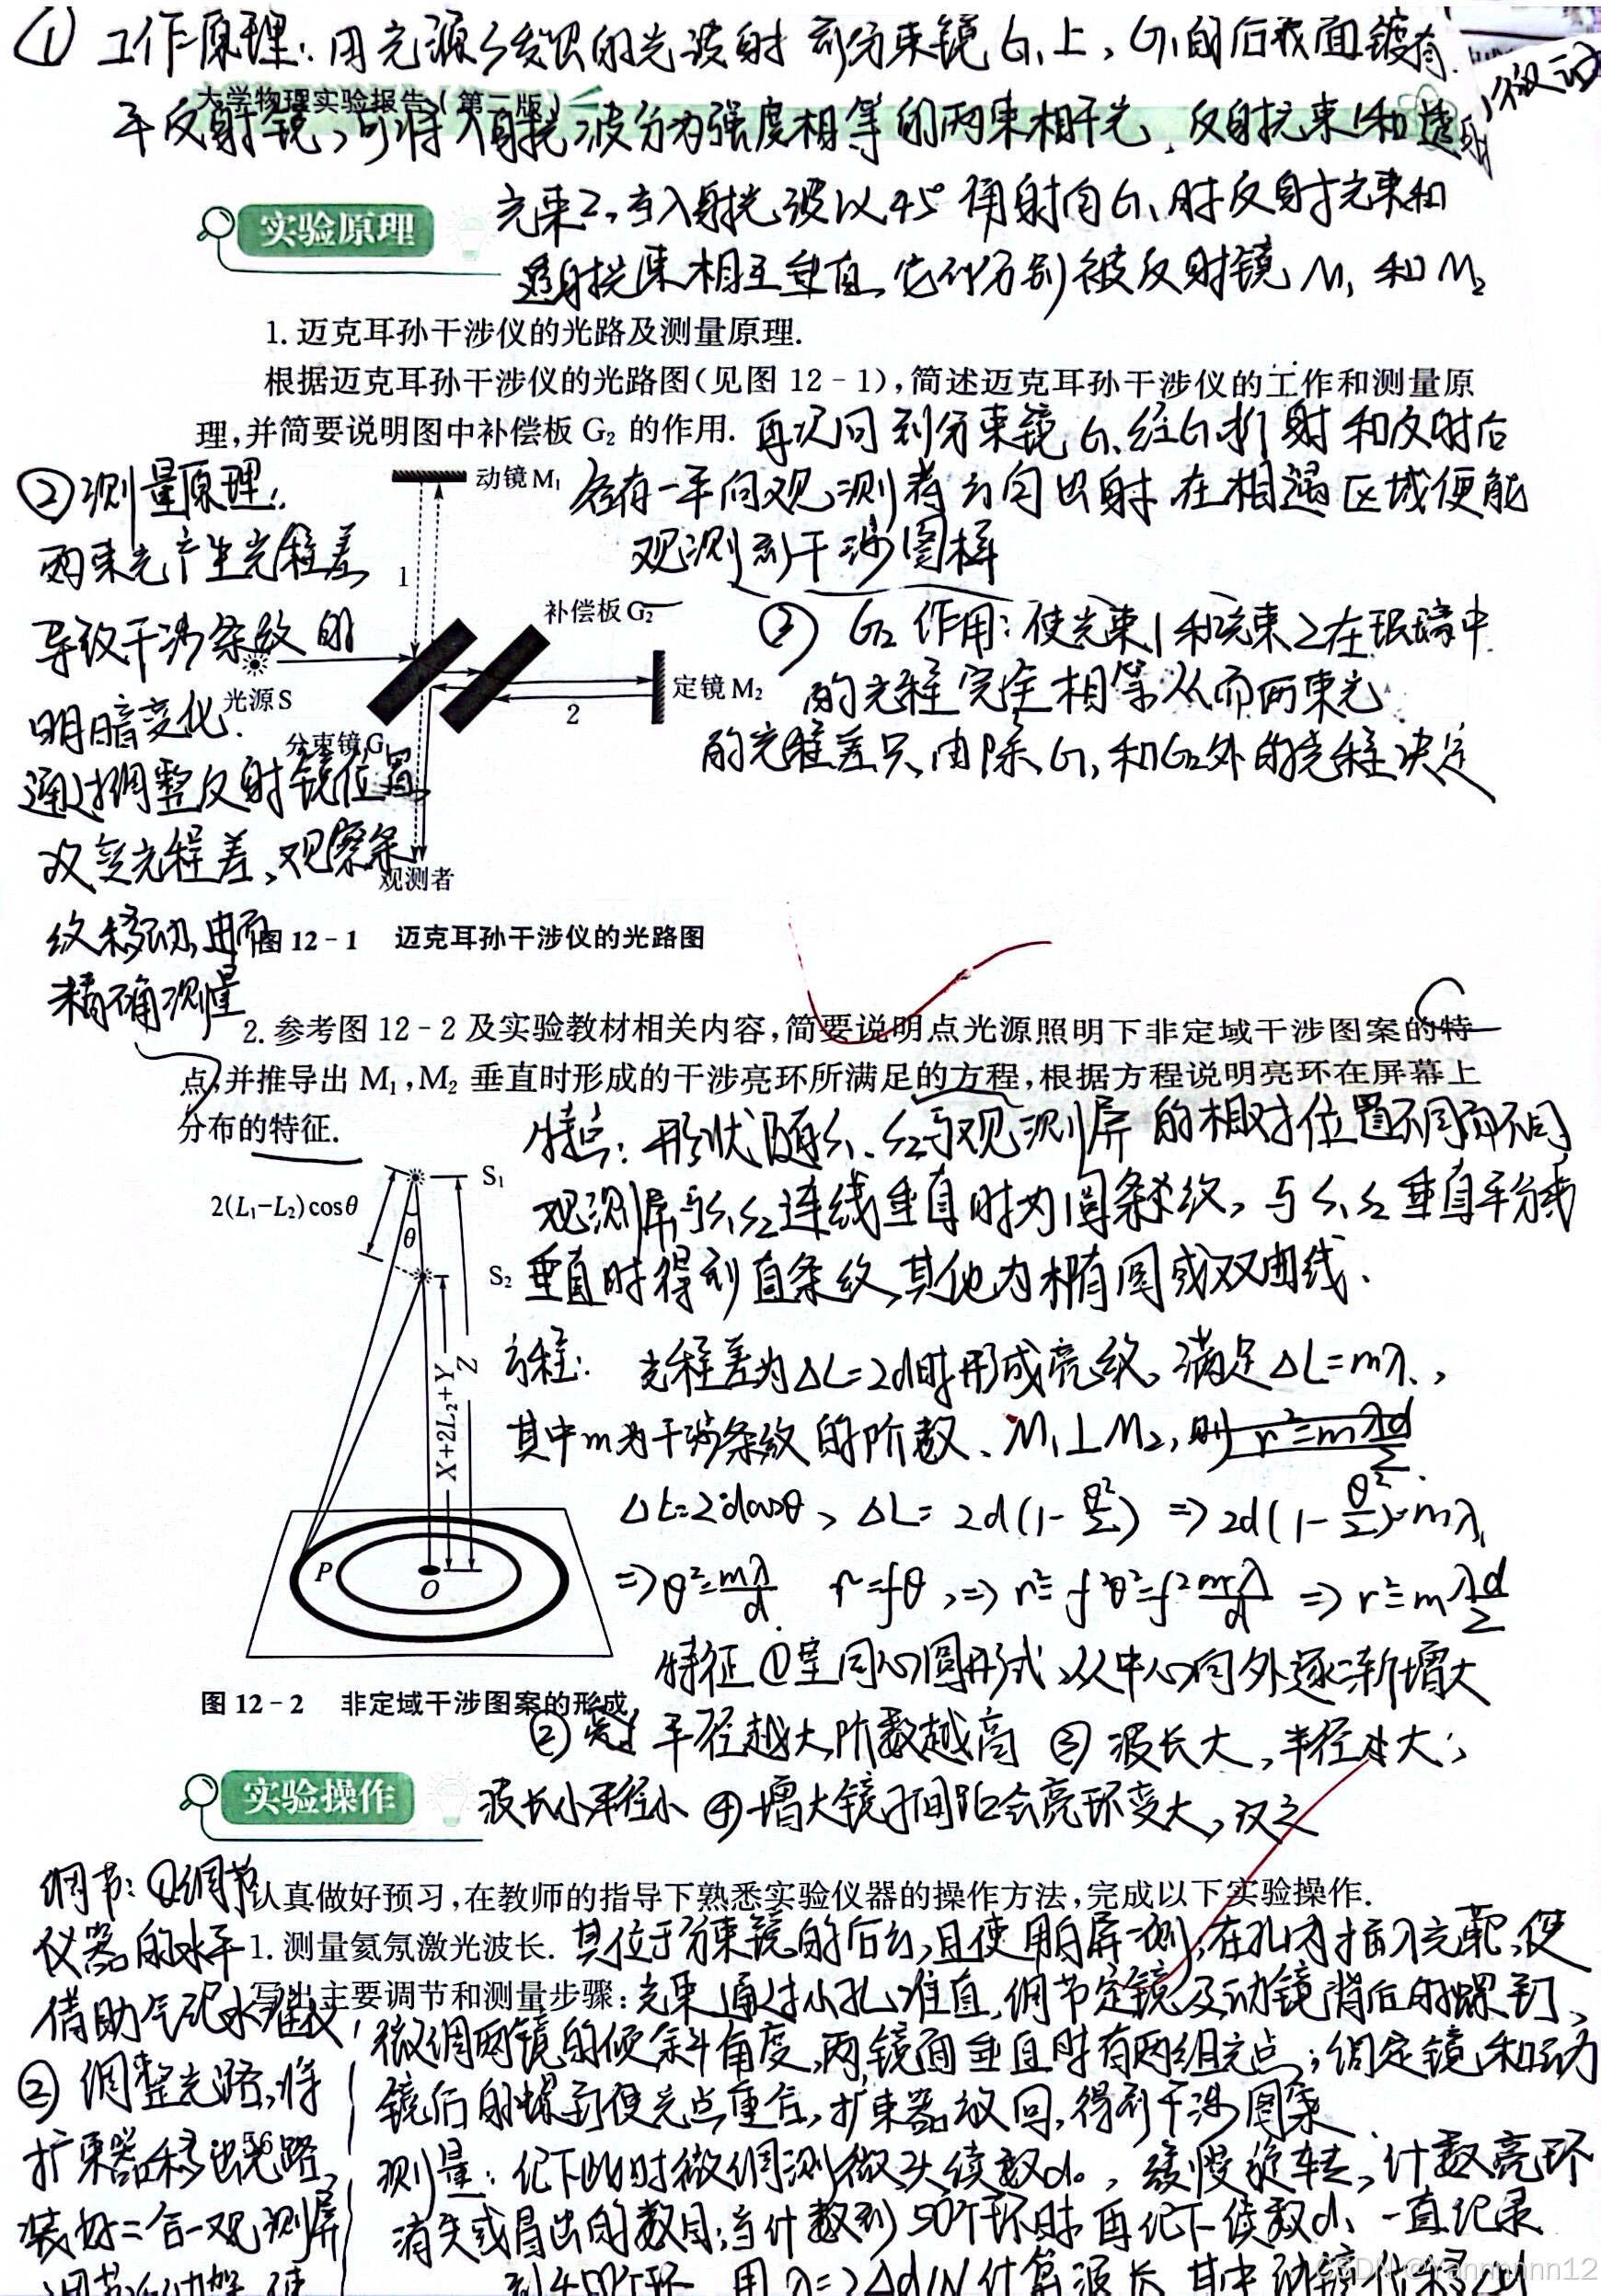 ① 工作原理：用光源S发出的光波射到分束镜G₁上，G₁的后表面镀有
大学物理实验报告（第二版）
半反射镜，可将入射光波分为强度相等的两束相干光，反射光束1和透射
光束2，当入射光波以45°角射向G₁时反射光束和
实验原理
透射光束相互垂直，它们分别被反射镜M₁和M₂
1. 迈克耳孙干涉仪的光路及测量原理.
根据迈克耳孙干涉仪的光路图(见图 12-1),简述迈克耳孙干涉仪的工作和测量原
理,并简要说明图中补偿板 G₂ 的作用.
再次回到分束镜G₁经G₁折射和反射后
各有一半向观测者方向出射 在相遇区域便能
观测到干涉图样
②测量原理：
两束光产生光程差
导致干涉条纹的
明暗变化.
通过调整反射镜位置
改变光程差,观察条
纹移动,进而
精确测量
动镜 M₁
1
补偿板 G₂
光源 S
定镜 M₂
2
分束镜 G₁
观测者
③ G₂作用：使光束1和光束2在玻璃中
的光程完全相等从而两束光
的光程差只由除G₁和G₂外的光程决定
图 12-1 迈克耳孙干涉仪的光路图
2. 参考图 12-2 及实验教材相关内容,简要说明点光源照明下非定域干涉图案的特
点,并推导出 M₁,M₂ 垂直时形成的干涉亮环所满足的方程,根据方程说明亮环在屏幕上
分布的特征.
特点：形状随S₁、S₂与观测屏的相对位置不同而不同
观测屏与S₁S₂连线垂直时为圆条纹，与S₁S₂垂直平分线
垂直时得到直条纹,其他为椭圆或双曲线.
S₁
2(L₁-L₂)cosθ
θ
S₂
X+2L₂+Y
Z
P
O
方程： 光程差为ΔL=2d时形成亮纹，满足ΔL=mλ，
其中m为干涉条纹的阶数、M₁⊥M₂，则 r²=mλd/2
ΔL=2dcosθ，ΔL=2d(1-θ²/2) ⇒2d(1-θ²/2)=mλ
⇒θ²=mλ/d r=fθ，⇒r²=f²θ²=f²mλ/d ⇒r²=mλd/2
特征①呈同心圆形式，从中心向外逐渐增大
图 12-2 非定域干涉图案的形成
② 半径越大,阶数越高 ③ 波长大，半径大；
实验操作
波长小半径小 ④增大镜子间距会亮环变大，反之
调节：①调节
仪器的水平
借助气泡水准仪，
② 调整光路,将
扩束器移出光路，
装好二合一观测屏
认真做好预习,在教师的指导下熟悉实验仪器的操作方法,完成以下实验操作.
1. 测量氦氖激光波长.
其位于分束镜的后方,且使用白屏一侧,在孔内插入光靶,使
写出主要调节和测量步骤:
光束通过小孔准直,调节定镜及动镜背后的螺钉，
微调两镜的倾斜角度,两镜面垂直时有两组光点；调定镜和动
镜后的螺钉使光点重合,扩束器放回,得到干涉图案
测量：记下此时微调测微头读数d₀，缓慢旋转，计数亮环
消失或冒出的数目；当计数到50个环时再记下读数d₁ 一直记录
56
CSDN @Yannnnnn12